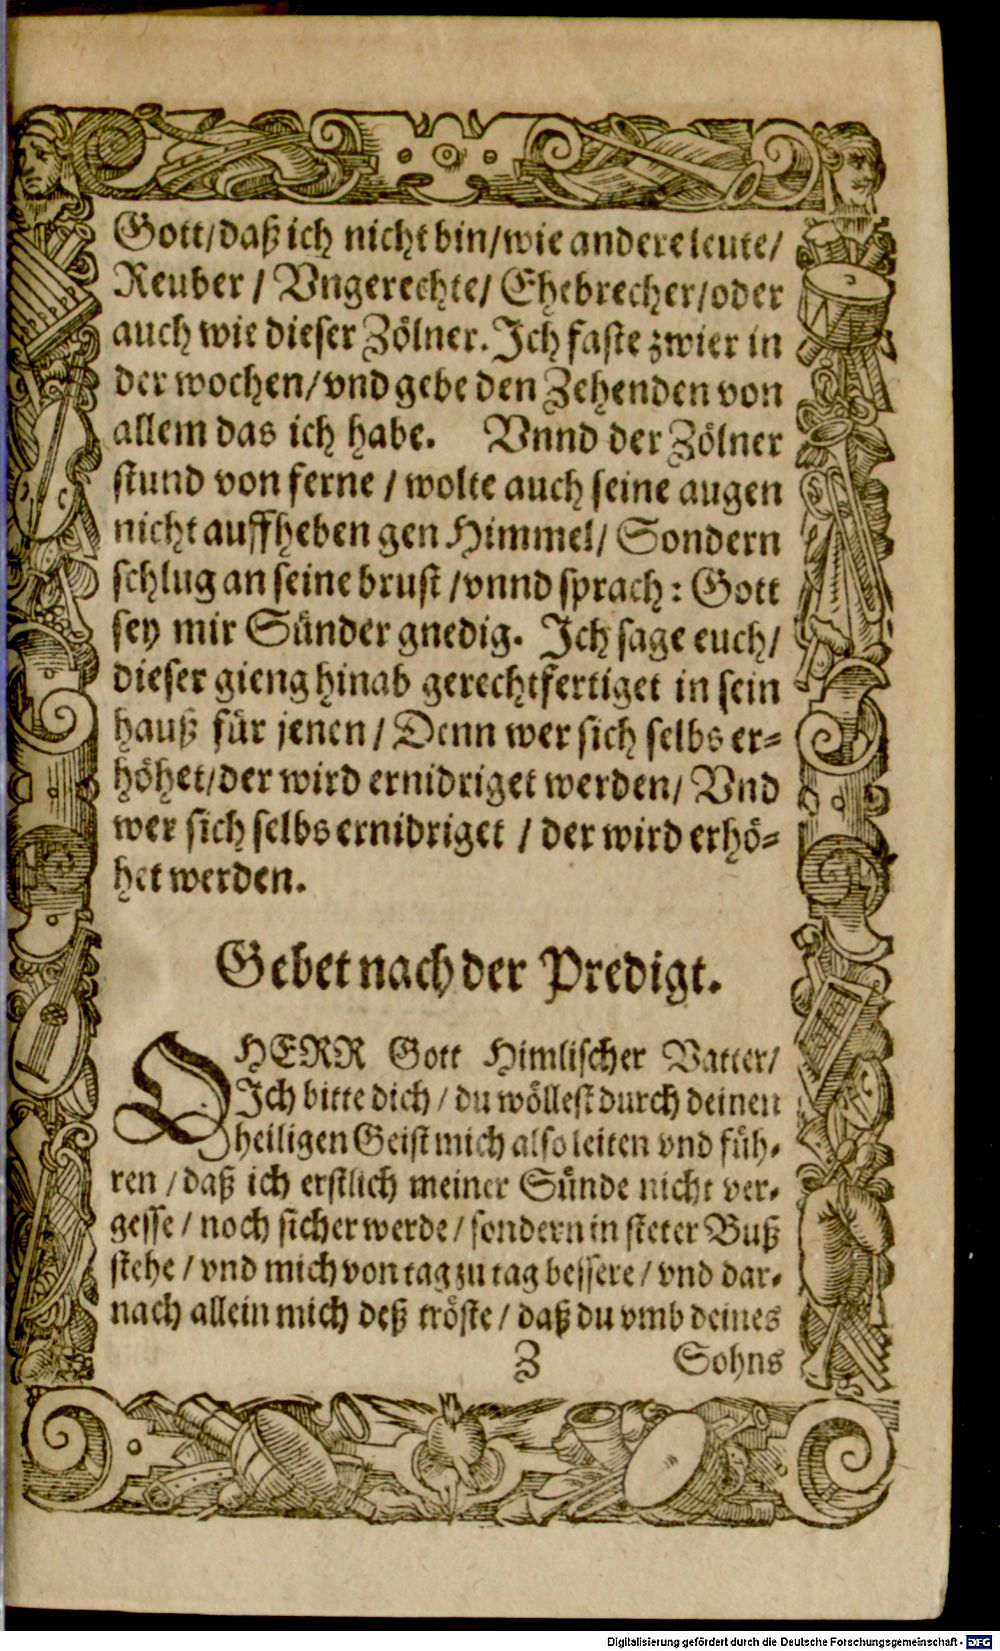 Gott/daß ich nicht bin/wie andere leute/
Reuber / Vngerechte/ Ehebrecher/oder
auch wie dieser Zölner. Ich faste zwier in
der wochen/vnd gebe den Zehenden von
allem das ich habe. Vnnd der Zölner
stund von ferne / wolte auch seine augen
nicht auffheben gen Himmel/ Sondern
schlug an seine brust /vnnd sprach: Gott
sey mir Sünder gnedig. Ich sage euch/
dieser gieng hinab gerechtfertiget in sein
hauß für jenen / Denn wer sich selbs er-
höhet/der wird ernidriget werden/ Vnd
wer sich selbs ernidriget / der wird erhö-
het werden.
Gebet nach der Predigt.
O HERR Gott Himlischer Vatter/
Ich bitte dich / du wöllest durch deinen
heiligen Geist mich also leiten vnd füh-
ren / daß ich erstlich meiner Sünde nicht ver-
gesse / noch sicher werde / sondern in steter Buß
stehe / vnd mich von tag zu tag bessere / vnd dar-
nach allein mich deß tröste / daß du vmb deines
Z Sohns
Digitalisierung gefördert durch die Deutsche Forschungsgemeinschaft - DFG